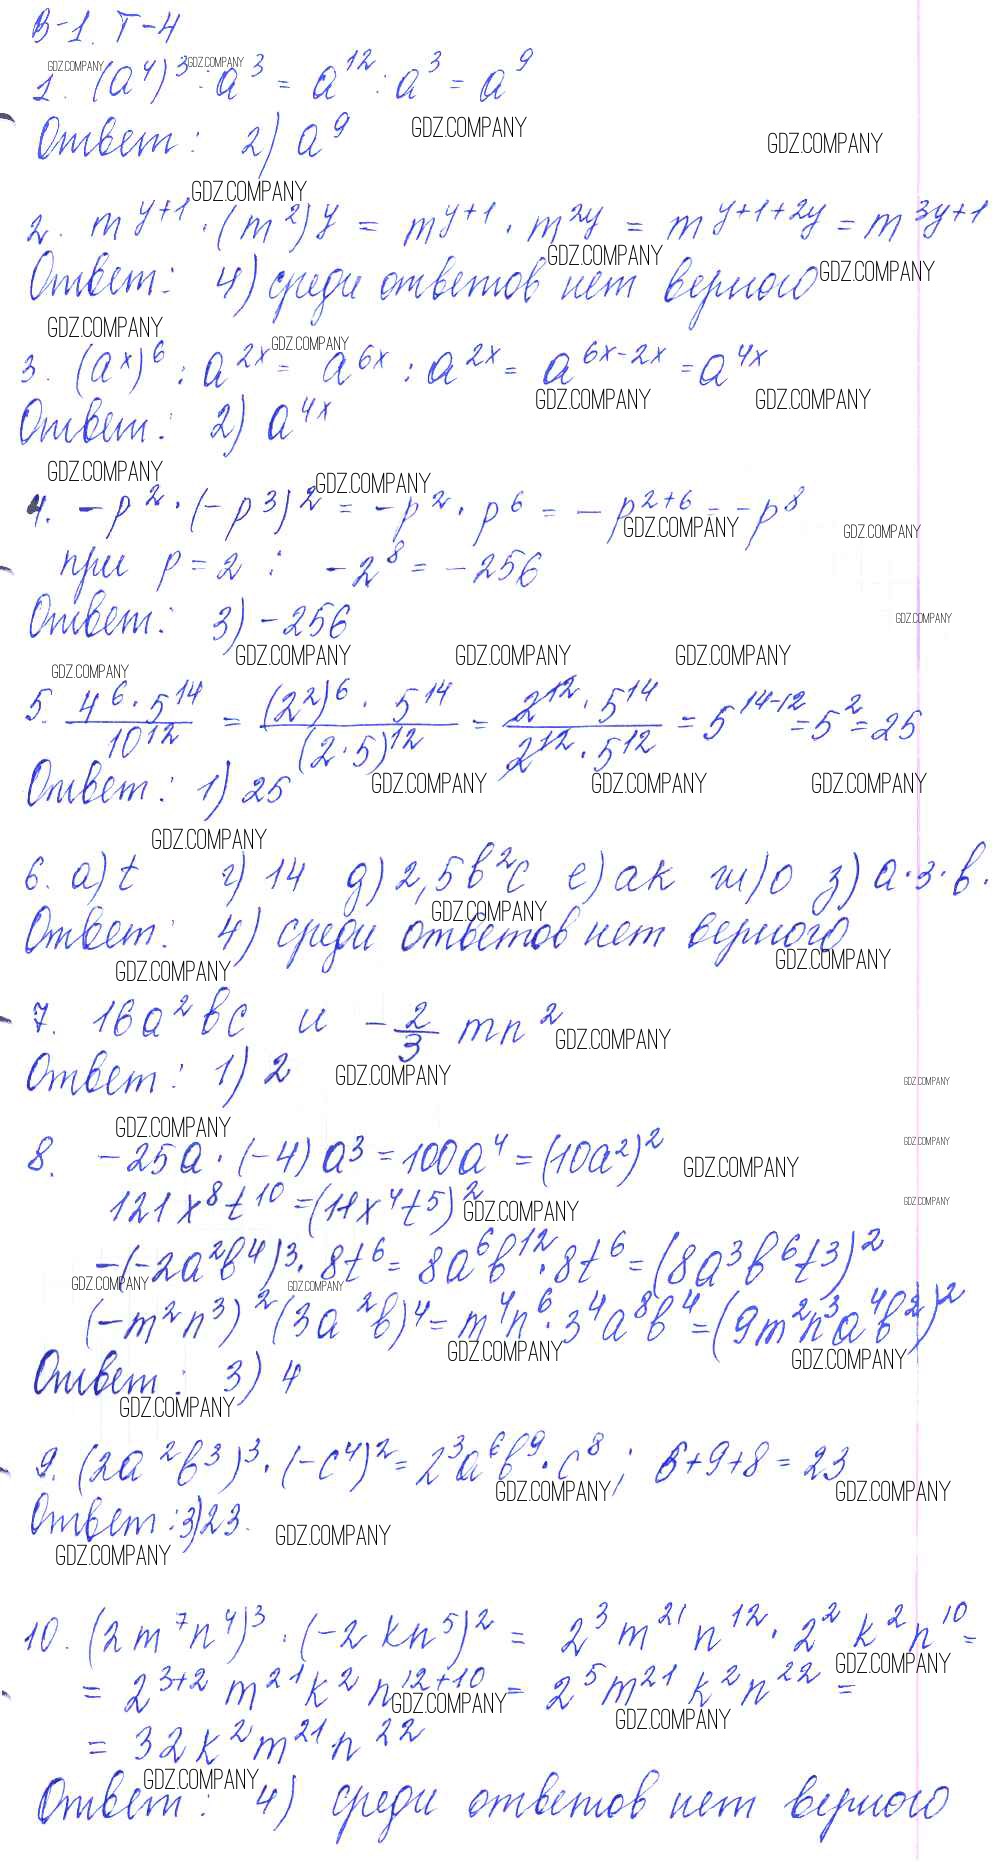 В-1. Т-4
1. (a⁴)³ : a³ = a¹² : a³ = a⁹
Ответ: 2) a⁹
2. m^(y+1) · (m²)^y = m^(y+1) · m^(2y) = m^(y+1+2y) = m^(3y+1)
Ответ: 4) среди ответов нет верного
3. (a^x)⁶ : a^(2x) = a^(6x) : a^(2x) = a^(6x-2x) = a^(4x)
Ответ: 2) a^(4x)
4. -p² · (-p³)² = -p² · p⁶ = -p^(2+6) = -p⁸
при p = 2 : -2⁸ = -256
Ответ: 3) -256
5. (4⁶ · 5¹⁴)/(10¹²) = ((2²)⁶ · 5¹⁴)/((2·5)¹²) = (2¹² · 5¹⁴)/(2¹² · 5¹²) = 5^(14-12) = 5² = 25
Ответ: 1) 25
6. а) t г) 14 д) 2,5b²c е) ak ж) 0 з) a·3·b.
Ответ: 4) среди ответов нет верного
7. 16a²bc и -2/3 mn²
Ответ: 1) 2
8. -25a · (-4) a³ = 100a⁴ = (10a²)²
121x⁸t¹⁰ = (11x⁴t⁵)²
-(-2a²b⁴)³ · 8t⁶ = 8a⁶b¹² · 8t⁶ = (8a³b⁶t³)²
(-m²n³)² (3a²b)⁴ = m⁴n⁶ · 3⁴a⁸b⁴ = (9m²n³a⁴b²)²
Ответ: 3) 4
9. (2a²b³)³ · (-c⁴)² = 2³a⁶b⁹ · c⁸ ; 6+9+8 = 23
Ответ: 3) 23.
10. (2m⁷n⁴)³ · (-2kn⁵)² = 2³m²¹n¹² · 2²k²n¹⁰ =
= 2^(3+2) m²¹k²n^(12+10) = 2⁵m²¹k²n²² =
= 32k²m²¹n²²
Ответ: 4) среди ответов нет верного
GDZ.COMPANY